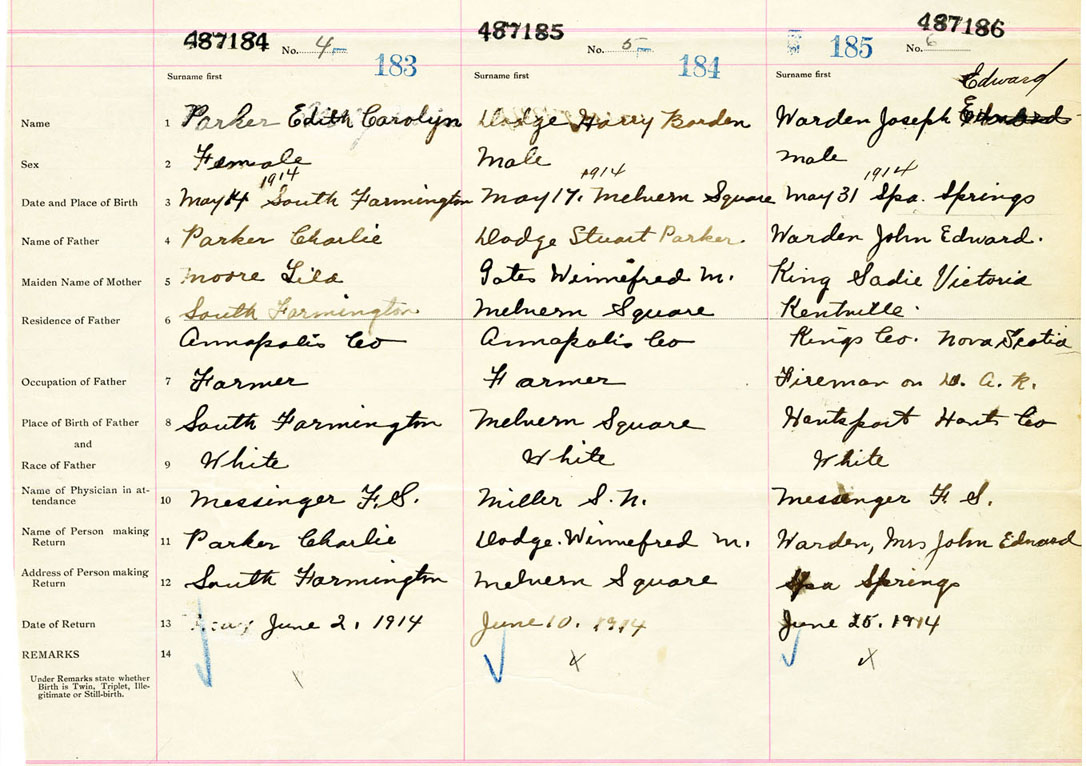 487184 487185 487186
No. 4 183 No. 5 184 185 No. 6
Surname first Surname first Surname first Edward
Name 1 Parker Edith Carolyn Dodge Harry Borden Warden Joseph
Sex 2 Female Male male
1914 1914 1914
Date and Place of Birth 3 May 14 South Farmington May 17. Melvern Square May 31 Spa. Springs
Name of Father 4 Parker Charlie Dodge Stuart Parker. Warden John Edward.
Maiden Name of Mother 5 Moore Lila Gates Winnefred M. King Sadie Victoria
Residence of Father 6 South Farmington Melvern Square Kentville
Annapolis Co Annapolis Co Kings Co. Nova Scotia
Occupation of Father 7 Farmer Farmer Fireman on D. A. R.
Place of Birth of Father 8 South Farmington Melvern Square Hantsport Hants Co
and
Race of Father 9 White White White
Name of Physician in at-
tendance 10 Messinger F. S. Miller S. N. Messenger F. S.
Name of Person making
Return 11 Parker Charlie Dodge. Winnefred M. Warden, Mrs John Edward
Address of Person making
Return 12 South Farmington Melvern Square Spa Springs
Date of Return 13 June 2. 1914 June 10. 1914 June 25. 1914
REMARKS 14
x x x
Under Remarks state whether
Birth is Twin, Triplet, Ille-
gitimate or Still-birth.